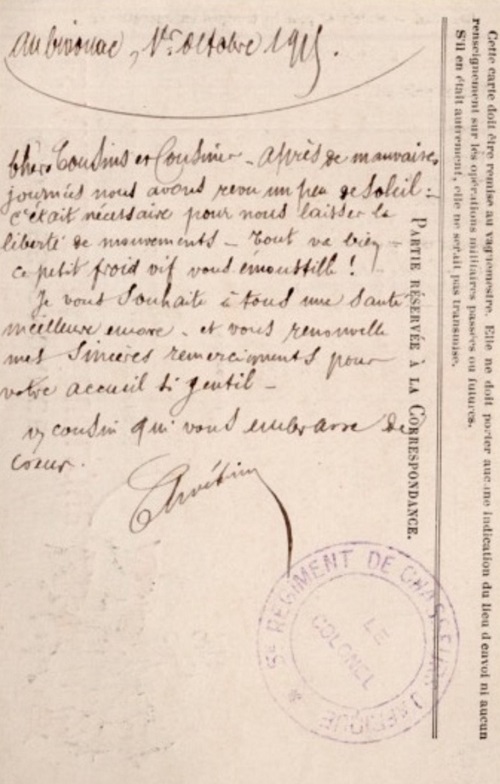 Au bivouac, 1er octobre 1915.
Chers Cousins et Cousine - après de mauvaises
journées nous avons revu un peu de soleil :
c'était nécessaire pour nous laisser la
liberté de mouvements - Tout va bien -
ce petit froid vif vous émoustille !
Je vous souhaite à tous une santé
meilleure encore - et vous renouvelle
mes sincères remerciements pour
votre accueil si gentil -
cousin qui vous embrasse de
coeur.
PARTIE RÉSERVÉE À LA CORRESPONDANCE.
Cette carte doit être remise au vaguemestre. Elle ne doit porter aucune indication du lieu d'envoi ni aucun
renseignement sur les opérations militaires passées ou futures.
S'il en était autrement, elle ne serait pas transmise.
5e RÉGIMENT DE CHASSEURS D'AFRIQUE *
LE
COLONEL